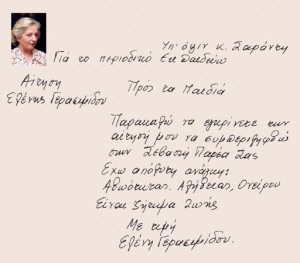 Υπ' όψιν κ. Σαράντη
Για το περιοδικό Εκ Παιδειών
Αίτηση
Ελένης Γερασιμίδου
Προς τα Παιδιά
Παρακαλώ να εγκρίνετε την
αίτησή μου να συμπεριληφθώ
στην Σεβαστή Παρέα Σας
Έχω απόλυτη ανάγκη:
Αθωότητας. Αλήθειας, Ονείρου
Είναι ζήτημα Ζωής
Με τιμή
Ελένη Γερασιμίδου.